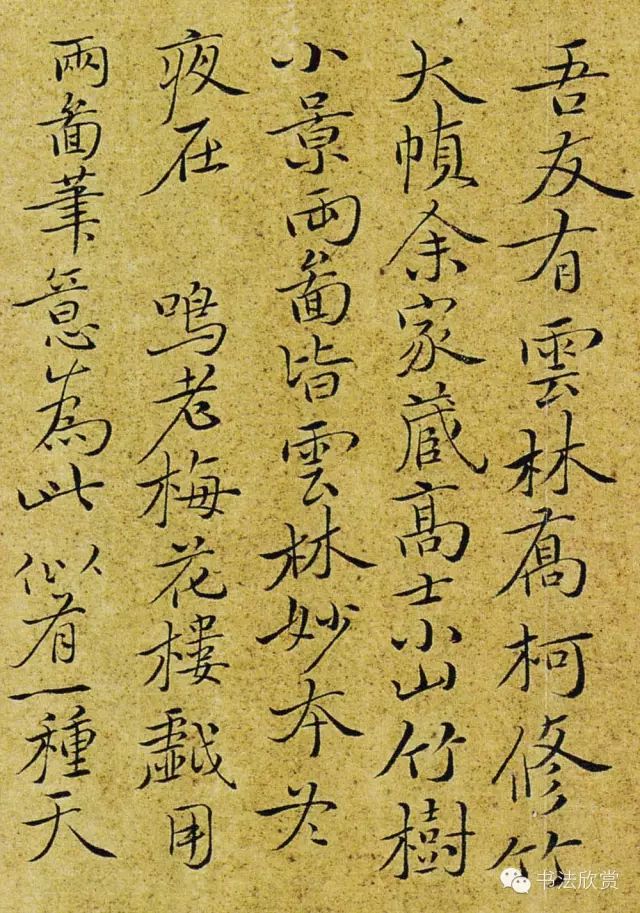 吾友有雲林喬柯修竹
大幀余家藏高士小山竹樹
小景兩啚皆雲林妙本冬
夜在 鳴老梅花樓戲用
兩啚筆意為此似有一種天
书法欣赏